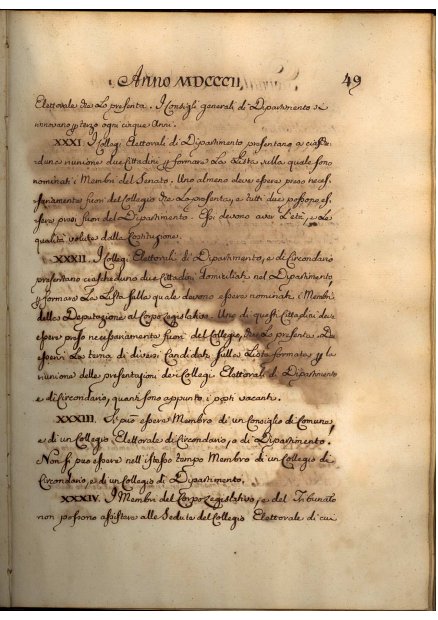 Anno MDCCCII. 49
Elettorale che Lo presenta. I Consigli generali di Dipartimento si
rinnovano p terzo ogni cinque Anni.
XXXI. I Collegj Elettorali di Dipartimento presentano a ciasche-
duna riunione due Cittadini p formare La Lista, sulla quale sono
nominati i Membri del Senato. Uno almeno deve essere preso neces-
sariamente fuori del Collegio che La presenta, e tutti due possono es-
sere presi fuori del Dipartimento. Essi devono aver L'età, e Le
qualità volute dalla Costituzione.
XXXII. I Collegj Elettorali di Dipartimento, e di Circondario
presentano ciascheduno due Cittadini domiciliati nel Dipartimento
p formare La Lista sulla quale devono essere nominati i Membri
della Deputazione al Corpo Legislativo. Uno di questi Cittadini deve
essere preso necessariamente fuori del Collegio, che Lo presenta. De
esservi La terna di diversi Candidati sulla Lista formata p la
riunione delle presentazioni dei Collegj Elettorali di Dipartimento
e di Circondario, quanti sono appunto i posti vacanti.
XXXIII. Si può essere Membro di un Consiglio di Comune,
e di un Collegio Elettorale di Circondario, o di Dipartimento.
Non si può essere nell'istesso tempo Membro di un Collegio di
Circondario, e di un Collegio di Dipartimento.
XXXIV. I Membri del Corpo Legislativo, e del Tribunato
non possono assistere alle Sedute del Collegio Elettorale di cui